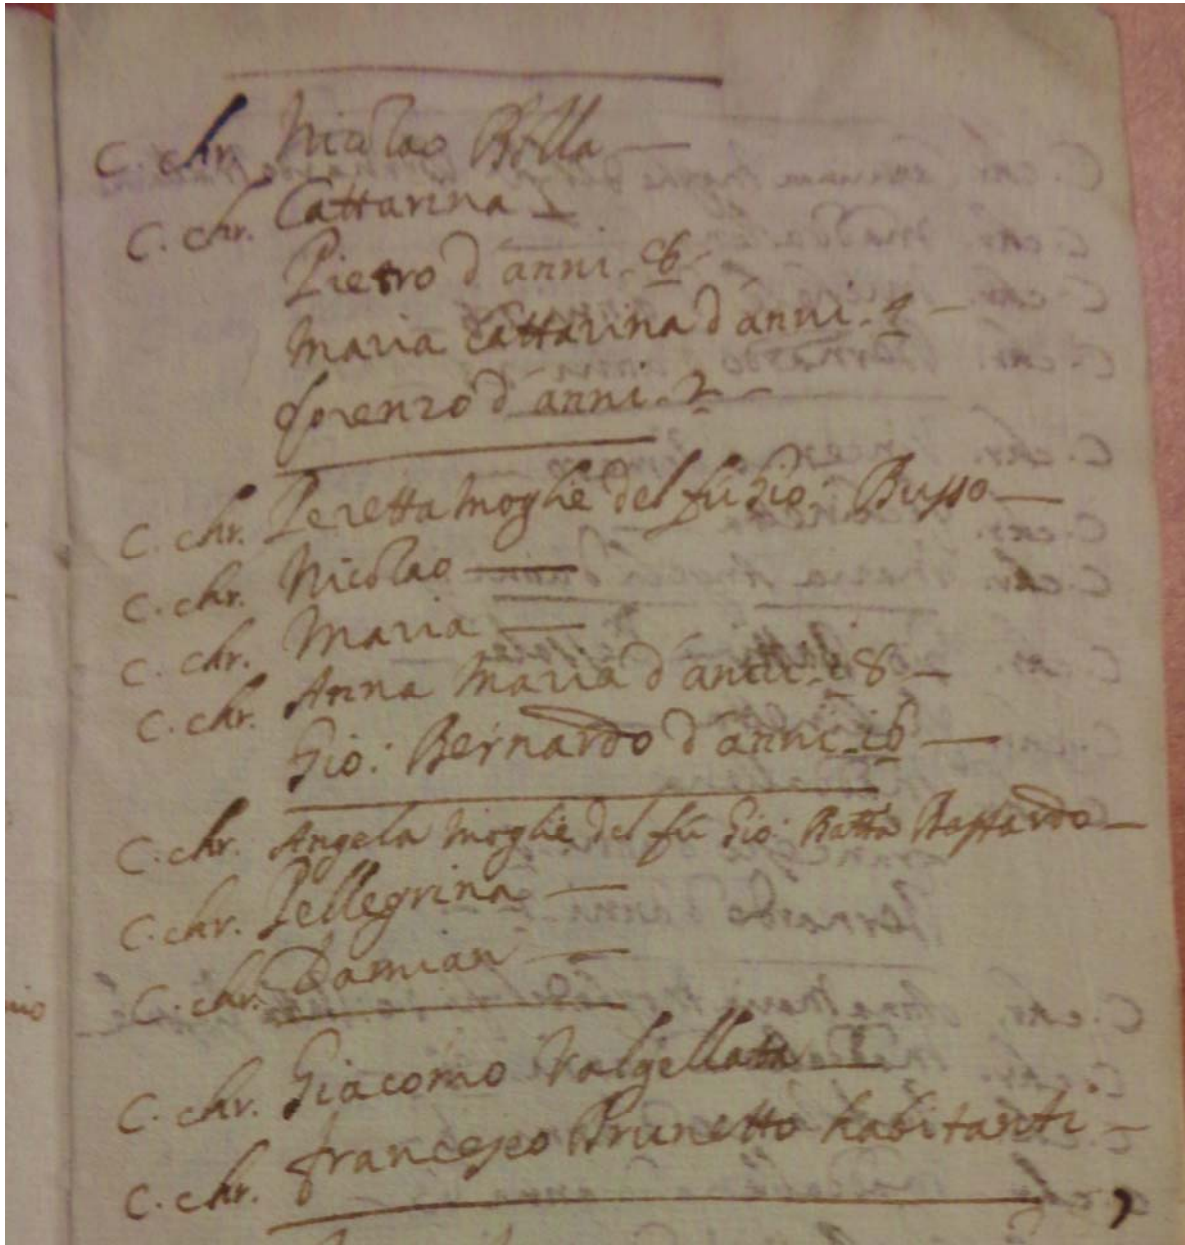 C. chr. Nicolao Bolla —
C. chr. Cattarina —
Pietro d'anni - 6 -
Maria Cattarina d'anni - 4 —
Lorenzo d'anni - 2 —
C. chr. Peretta moglie del fù Gio: Busso —
C. chr. Nicolao —
C. chr. Maria —
C. chr. Anna Maria d'anni 18 —
Gio: Bernardo d'anni - 16 —
C. chr. Angela moglie del fù Gio: Batta Bassardo —
C. chr. Pellegrina —
C. chr. Damian —
C. chr. Giacomo Valgellatta —
C. chr. Francesco Brunetto habitanti —